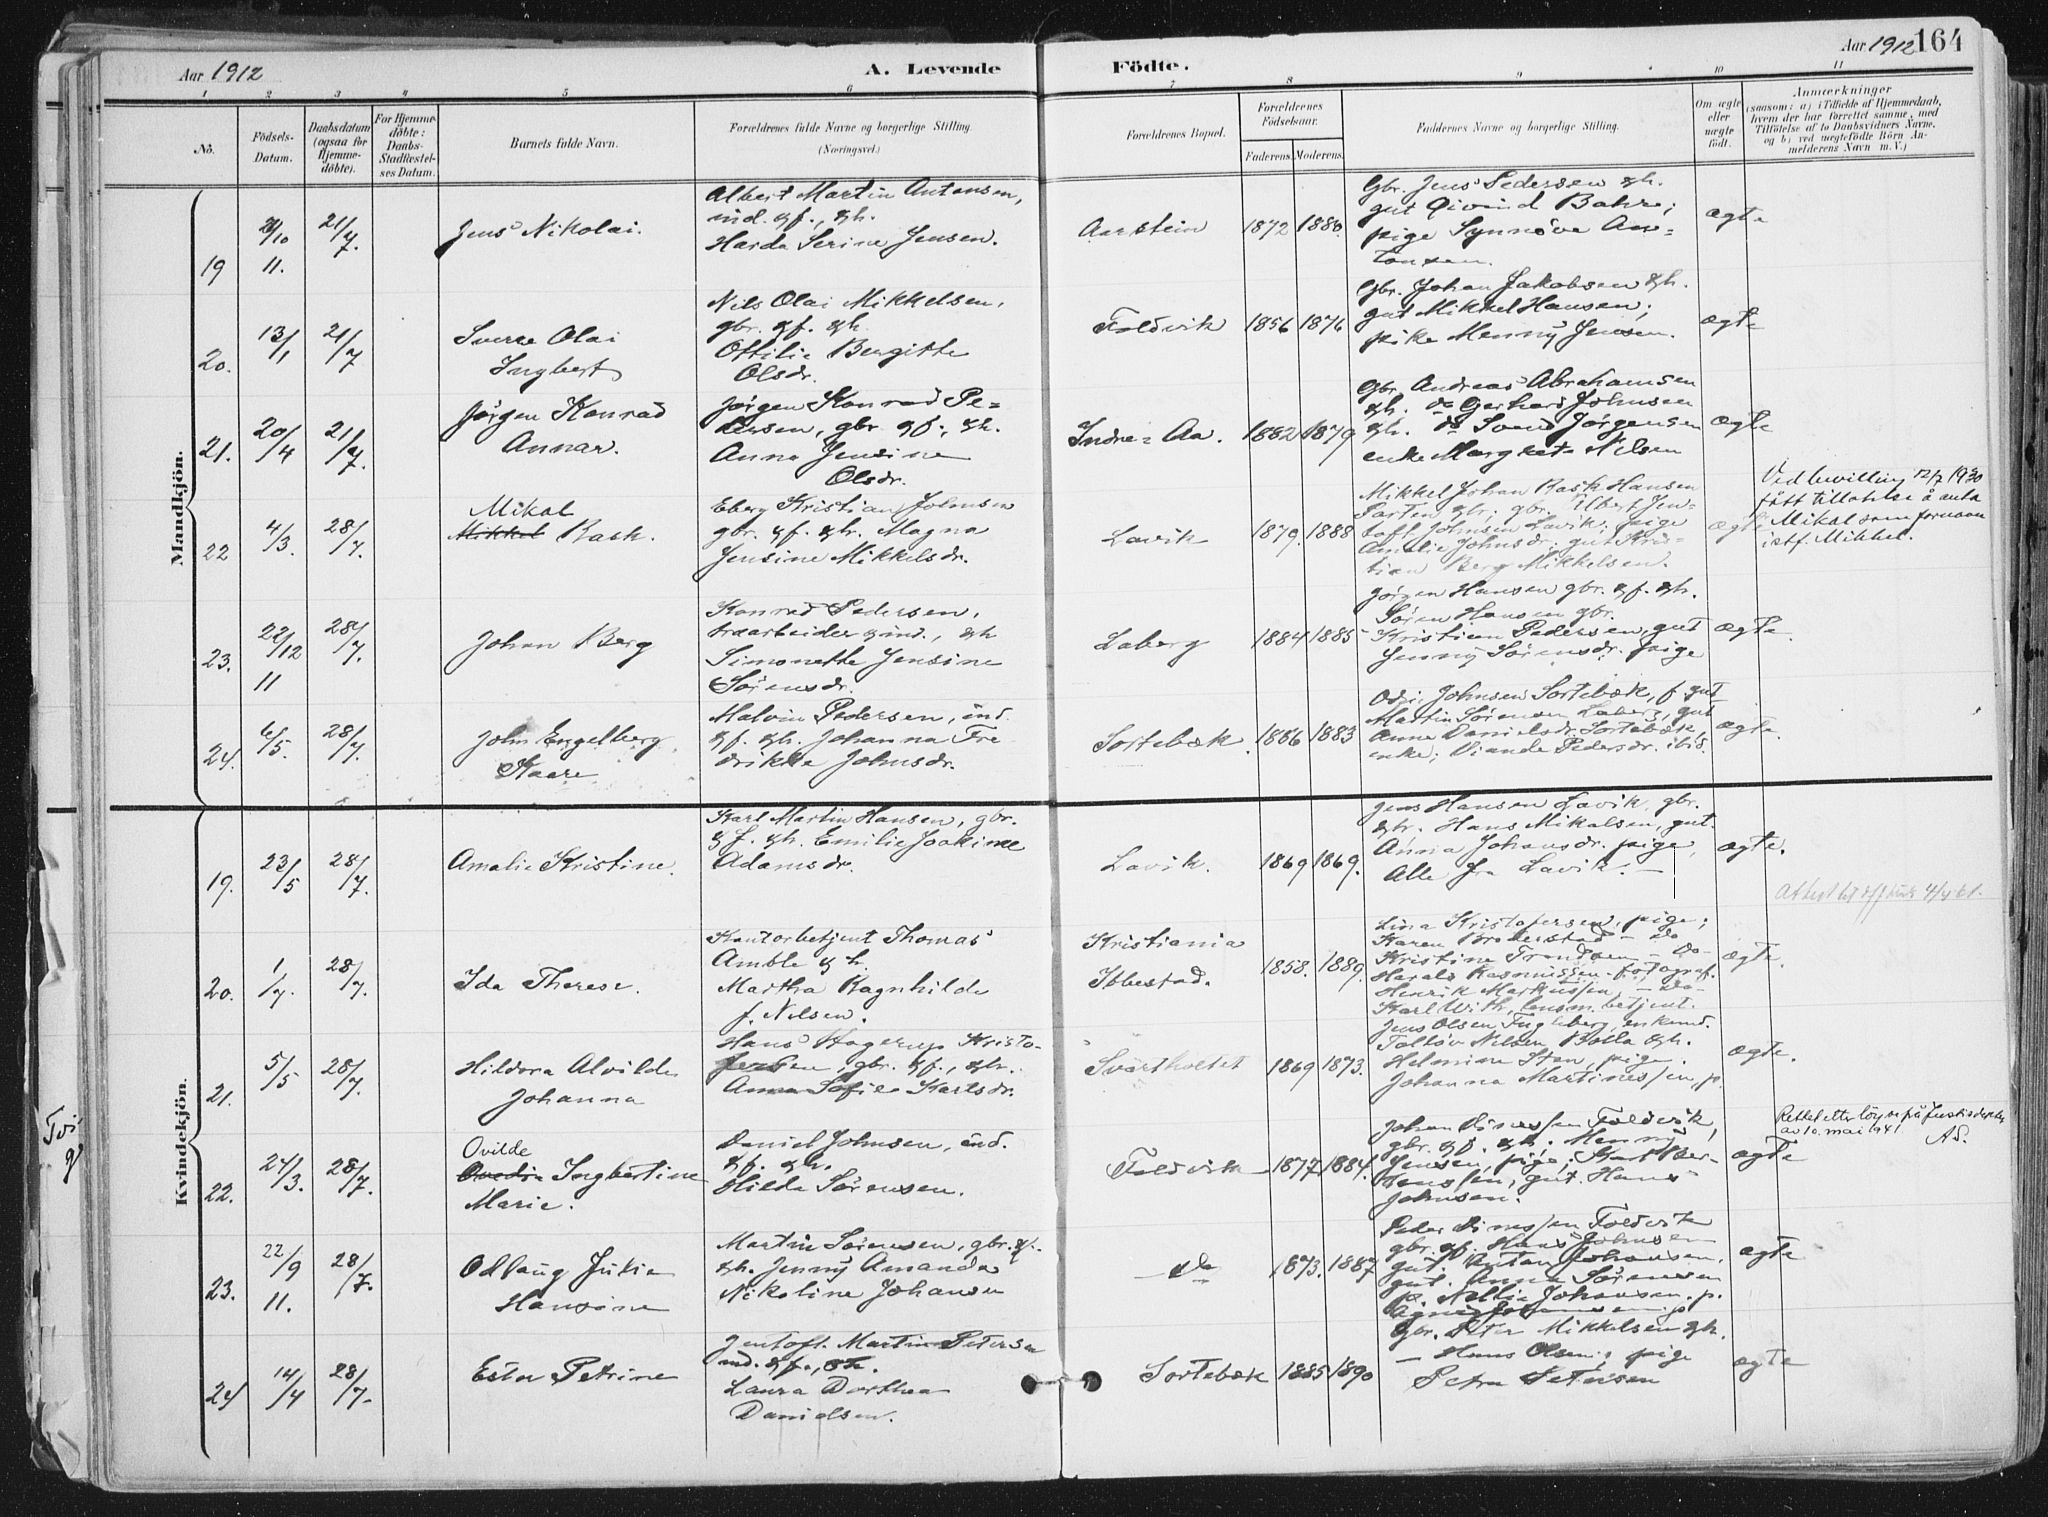 Aar 1912
A. Levende
Födte.
Aar 1912
164
1 2 3 4 5 6 7 8 9 10 11
Nö.
Födsels-
Datum.
Daabsdatum
(ogsaa for
Hjemme-
döbte).
For Hjemme-
döbte:
Daabs-
Stadfæstel-
ses Datum.
Barnets fulde Navn.
Forældrenes fulde Navne og borgerlige Stilling.
(Næringsvei.)
Forældrenes Bopæl.
Forældrenes
Födselsaar.
Faderens.
Moderens.
Faddernes Navne og borgerlige Stilling.
Om ægte
eller
uægte
födt.
Anmærkninger
(saasom: a) i Tilfælde af Hjemmedaab,
hvem der har forrettet samme, med
Tilföielse af to Daabsvidners Navne,
og b) ved uegtefödte Börn An-
melderens Navn m. V.)
Mandkjön.
19
11.
21/7.
Jens Nikolai.
Albert Martin Antonsen,
ind. gf., gh.
Harda Serine Jensen.
Aarstein
1872
1880.
Gbr. Jens Pedersen gh.
gut Öivind Bakre;
pige Synnöve An=
tonsen.
ægte
20.
13/1
21/7
Sverre Olai
Ingbert
Nils Olai Mikkelsen,
gbr. gf. gh.
Ottilie Bergitte
Olsdr.
Foldvik
1856
1876
Gbr. Johan Jakobsen gh.
gut Mikkel Hansen;
pike Menny Jensen.
ægte
21.
20/4
21/7.
Jörgen Konrad
Annar.
Jörgen Konrad Pe=
dersen, gbr. gf., gh.
Anna Jensine
Olsdr.
Indre=Aa.
1882
1879
Gbr. Andreas Abrahamsen
gh. do Gerhard Johnsen
gh. do Svend Jörgensen
enke Margrete Nilsen
ægte
22
4/3.
28/7.
Mikal
Mikkel Rask.
Eberg Kristian Johnsen
gbr. gf. gh. Magna
Jensine Mikkelsdr.
Lavik
1879.
1888
Mikkel Johan Rask Hansen
gbr. Albert Jen=
toft Johnsen Lavik, pige
Amalie Johnsdr. gut Kris=
tian Berg Mikkelsen.
ægte
Ved bevilling 12/7 1930
fått tillatelse å anta
Mikal som fornavn
istf. Mikkel.
23.
22/12
11
28/7.
Johan Berg
Konrad Pedersen,
træarbeider ind., gh
Simonette Jensine
Sörensdr.
Laberg
1884
1885
Jörgen Hansen gbr. gf. gh.
Sören Hansen gbr.
Kristian Pedersen, gut
Jenny Sörensdr. pige
ægte.
24.
6/5.
28/7.
John Engelberg
Kaare
Malvin Pedersen, ind.
gf. gh. Johanna Fre
drikke Johnsdr.
Sortebæk.
1886
1883
Johnsen Sortebæk, f. gut
Martin Sörensen Laberg, gut
Anne Danielsdr. Sortebæk,
enke; Pedersdr. ibid.
ægte.
Kvindekjön.
19.
23/5
28/7.
Amalie Kristine.
Karl Martin Hansen, gbr.
gf. gh. Emilie Joakime
Adamsdr.
Lavik.
1869
1869.
Jens Hansen Lavik, gbr.
gh. Hans Mikalsen, gut.
Anna Johansdr. pige,
Alle fra Lavik. —
ægte.
20.
1/7.
28/7.
Ida Therese.
Kontorbetjent Thomas
Amble gh.
Martha Ragnhilde
f. Nilsen.
Kristiania
Ibbestad.
1858.
1889.
Lina Kristofersen, pige;
Karen Broderstad — do
Kristine Trondsen — Do-
Harald Rasmussen - fotograf.
Henrik Markussen, — do-
Karl With, lensm. betjent.
ægte.
21.
5/5
28/7.
Hildora Alvilde
Johanna
Hans Hagerup Kristo-
fersen, gbr. gf., gh.
Anna Sofie Karlsdr.
Svartholtet
1869
1873.
Jens Olsen Fugleberg, enkemd.
Tollöv Nilsen Bolla gh.
Helmine Stan, pige.
Johanna Martinessen, p.
ægte.
22.
24/3.
28/7.
Ovilde
Ovedie Ingbertine
Marie.
Daniel Johnsen, ind.
gf. gh.
Hilda Sörensen.
Foldvik
1877
1884.
Johan Dinessen Foldvik,
gbr. gf. gh. Menny
Jensen, pige; Kart Ber-
tenssen, gut. Hans
Johnsen.
ægte
Rettet etter av Justisdeptet
av 10. mai 1941.
AS.
23.
22/9
11.
28/7.
Odlaug Julie
Hansine
Martin Sörensen, gbr. gf.
gh. Jenny Amanda
Nikoline Johansen
— do
1873.
1887
Peder Dinessen Foldvik
gbr. gf. Hans Johnsen
gut. Anton Johansen,
gut. Anna Sörensen
p. Nellie Johansen. p.
ægte
24
14/4
28/7-
Ester Petrine
Jentoft Martin Petersen
ind. gf., gh.
Laura Dorthea
Danielsen.
Sortebæk
1885
1890
Gbr. Peter Mikkelsen gh.
— Hans Olsen; pige
Petra Petersen
ægte